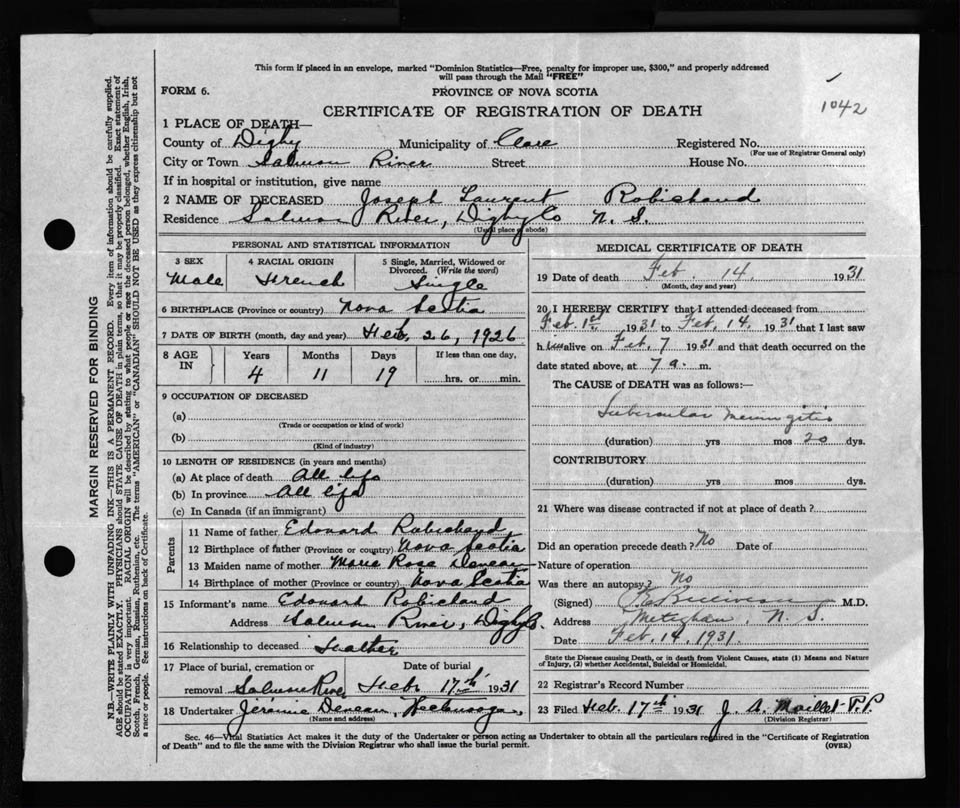 This form if placed in an envelope, marked "Dominion Statistics—Free, penalty for improper use, $300," and properly addressed
will pass through the Mail "FREE"
FORM 6.
PROVINCE OF NOVA SCOTIA
1042
CERTIFICATE OF REGISTRATION OF DEATH
1 PLACE OF DEATH—
County of Digby Municipality of Clare Registered No.
(For use of Registrar General only)
City or Town Salmon River Street House No.
If in hospital or institution, give name
2 NAME OF DECEASED Joseph Laurent Robichaud
Residence Salmon River, Digby Co N. S.
(Usual place of abode)
PERSONAL AND STATISTICAL INFORMATION
3 SEX
Male
4 RACIAL ORIGIN
French
5 Single, Married, Widowed or
Divorced. (Write the word)
Single
6 BIRTHPLACE (Province or country) Nova Scotia
7 DATE OF BIRTH (month, day and year) Feb. 26, 1926
8 AGE
IN
Years
4
Months
11
Days
19
If less than one day,
hrs. or min.
9 OCCUPATION OF DECEASED
(a)
(Trade or occupation or kind of work)
(b)
(Kind of industry)
10 LENGTH OF RESIDENCE (in years and months)
(a) At place of death All life
(b) In province All life
(c) In Canada (if an immigrant)
Parents
11 Name of father Edouard Robichaud
12 Birthplace of father (Province or country) Nova Scotia
13 Maiden name of mother Marie Rose Deveau
14 Birthplace of mother (Province or country) Nova Scotia
15 Informant's name Edouard Robichaud
Address Salmon River, Digby Co.
16 Relationship to deceased Father
17 Place of burial, cremation or
removal Salmon River
Date of burial
Feb 17th 1931
18 Undertaker Jéromie Deveau,
(Name and address)
MEDICAL CERTIFICATE OF DEATH
19 Date of death Feb. 14 1931
(Month, day and year)
20 I HEREBY CERTIFY that I attended deceased from
Feb. 1st 1931 to Feb. 14, 1931 that I last saw
him alive on Feb. 7 1931 and that death occurred on the
date stated above, at 7 a. m.
The CAUSE OF DEATH was as follows:—
Tubercular meningitis
(duration) yrs mos 20 dys.
CONTRIBUTORY
(duration) yrs mos dys.
21 Where was disease contracted if not at place of death?
Did an operation precede death? No Date of
Nature of operation
Was there an autopsy? No
(Signed) M.D.
Address Meteghan, N. S.
Date Feb. 14, 1931
State the Disease causing Death, or in death from Violent Causes, state (1) Means and Nature
of Injury, (2) whether Accidental, Suicidal or Homicidal.
22 Registrar's Record Number
23 Filed Feb. 17th 1931 J. A. Maillet P.P.
(Division Registrar)
Sec. 46—Vital Statistics Act makes it the duty of the Undertaker or person acting as Undertaker to obtain all the particulars required in the "Certificate of Registration
of Death" and to file the same with the Division Registrar who shall issue the burial permit.
(OVER)
MARGIN RESERVED FOR BINDING
N.B.—WRITE PLAINLY WITH UNFADING INK—THIS IS A PERMANENT RECORD. Every item of information should be carefully supplied.
AGE should be stated EXACTLY. PHYSICIANS should STATE CAUSE OF DEATH in plain terms, so that it may be properly classified. Exact statement of
OCCUPATION is very important. RACIAL ORIGIN will be described by stating to what people or race the deceased person belonged, whether English, Irish,
Scotch, French, German, Russian, Ruthenian, etc. The terms "AMERICAN" or "CANADIAN" SHOULD NOT BE USED as they express citizenship but not
a race or people. See instructions on back of Certificate.